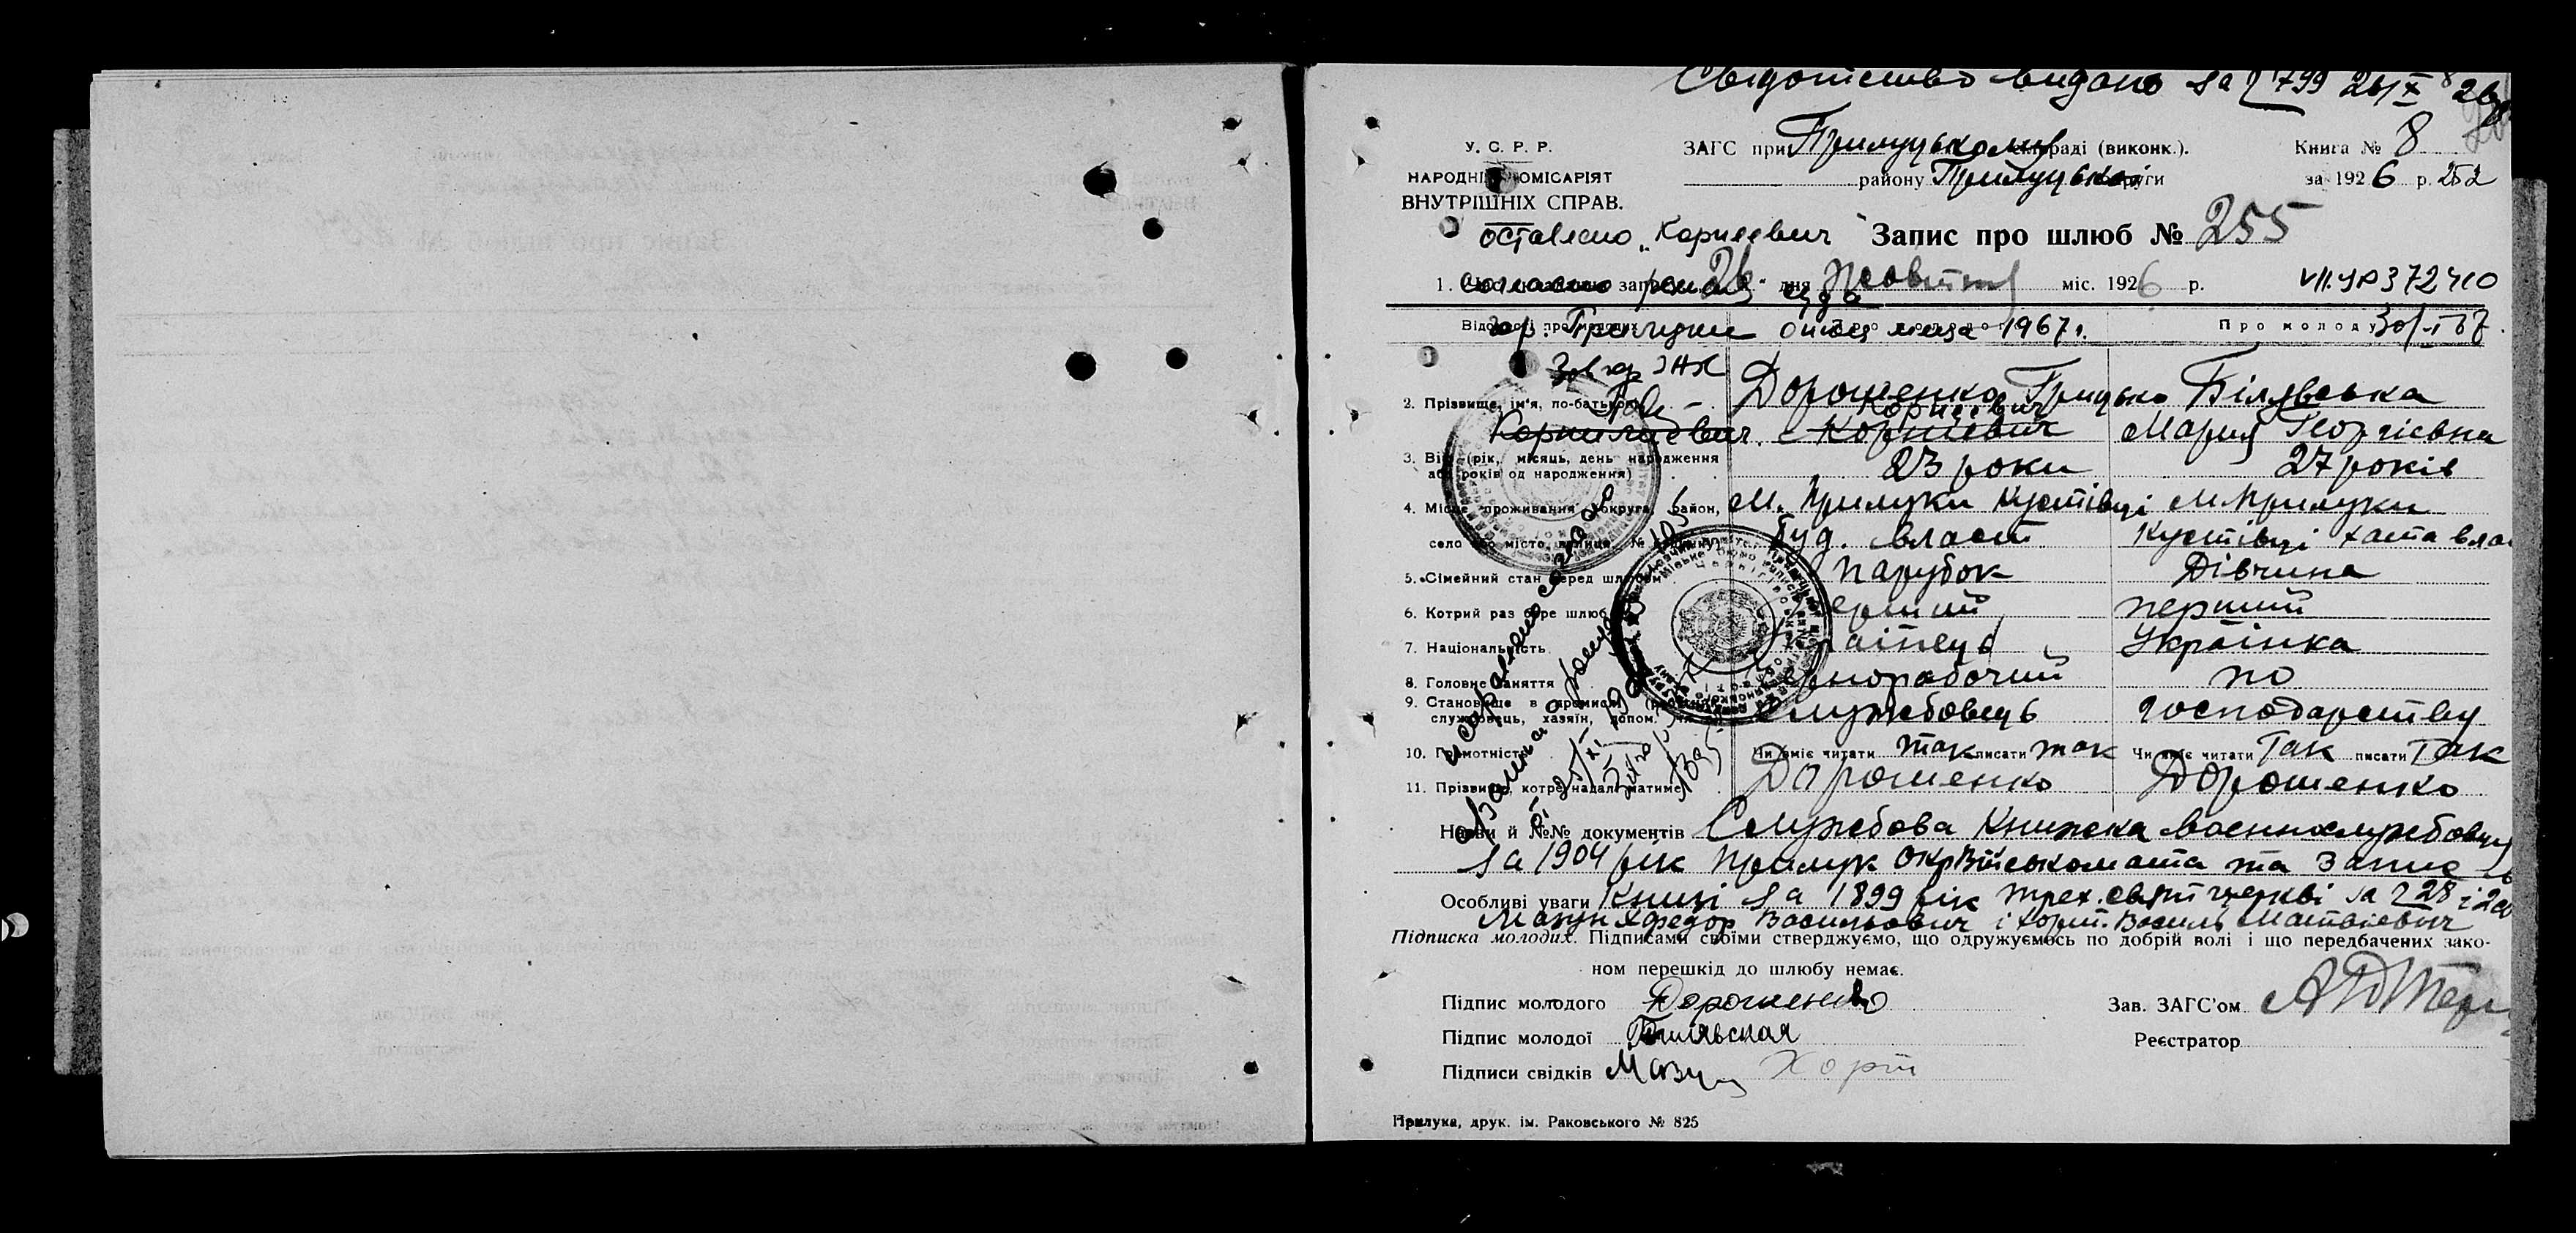 Свідотство видано за № 799 26/X 26
У. С. Р. Р.
НАРОДНІЙ КОМІСАРІЯТ
ВНУТРІШНІХ СПРАВ.
ЗАГС при Прилуцькому раді (виконк.).
району Прилуцької округи
Книга № 8
за 1926 р. 252
оставлено „Корнеевич"
Запис про шлюб № 255
1. запису 26 дня Жовтня міс. 1926 р.
согласно решения суда
VII.ЯР 372410
гор. Прилуки 1967г.
Про молоду
30/I 67
Зав гор ЗАГС
2. Прізвище, ім'я, по-батькові
Дорошенко Грицько
Корнеевич
Корнилиевич Корнієвич
Білявська
Мария Георгієвна
3. Вік (рік, місяць, день народження
або років од народження)
23 роки
27 років
4. Місце проживання (округа, район,
село або місто, вулиця, №
М. Прилуки Кустівці
буд. власт.
М. Прилуки
Кустівці хата влас
5. Сімейний стан перед шлюбом
парубок
Дівчина
6. Котрий раз бере шлюб
перший
перший
7. Національність
Українка
8. Головне заняття
чернорабочий
по
9. Становище в промислі
службовець, хазяїн, допом.
Службовець
господарству
10. Грамотність
Чи вміє читати так писати так
Чи вміє читати Так писати Так
11. Прізвище, котре надалі матиме
Дорошенко
Дорошенко
исправлено согласно
Назви й №№ документів Службова Книжка Военнослужбовця
за 1904 рік Прилук ОкрВійськомата та Запис в
Особливі уваги Книзі за 1899 рік трех.свят церкві за № 28 і 20
Мазун Федор Васильович і Хорт. Василь Матвієвич
Підписка молодих. Підписами своїми стверджуємо, що одружуємось по добрій волі і що передбачених зако-
ном перешкід до шлюбу немає.
Підпис молодого Дорошенко
Зав. ЗАГС'ом
Підпис молодої Билявская
Реєстратор
Підписи свідків Мазун Хорт
Прилука, друк. ім. Раковського № 825